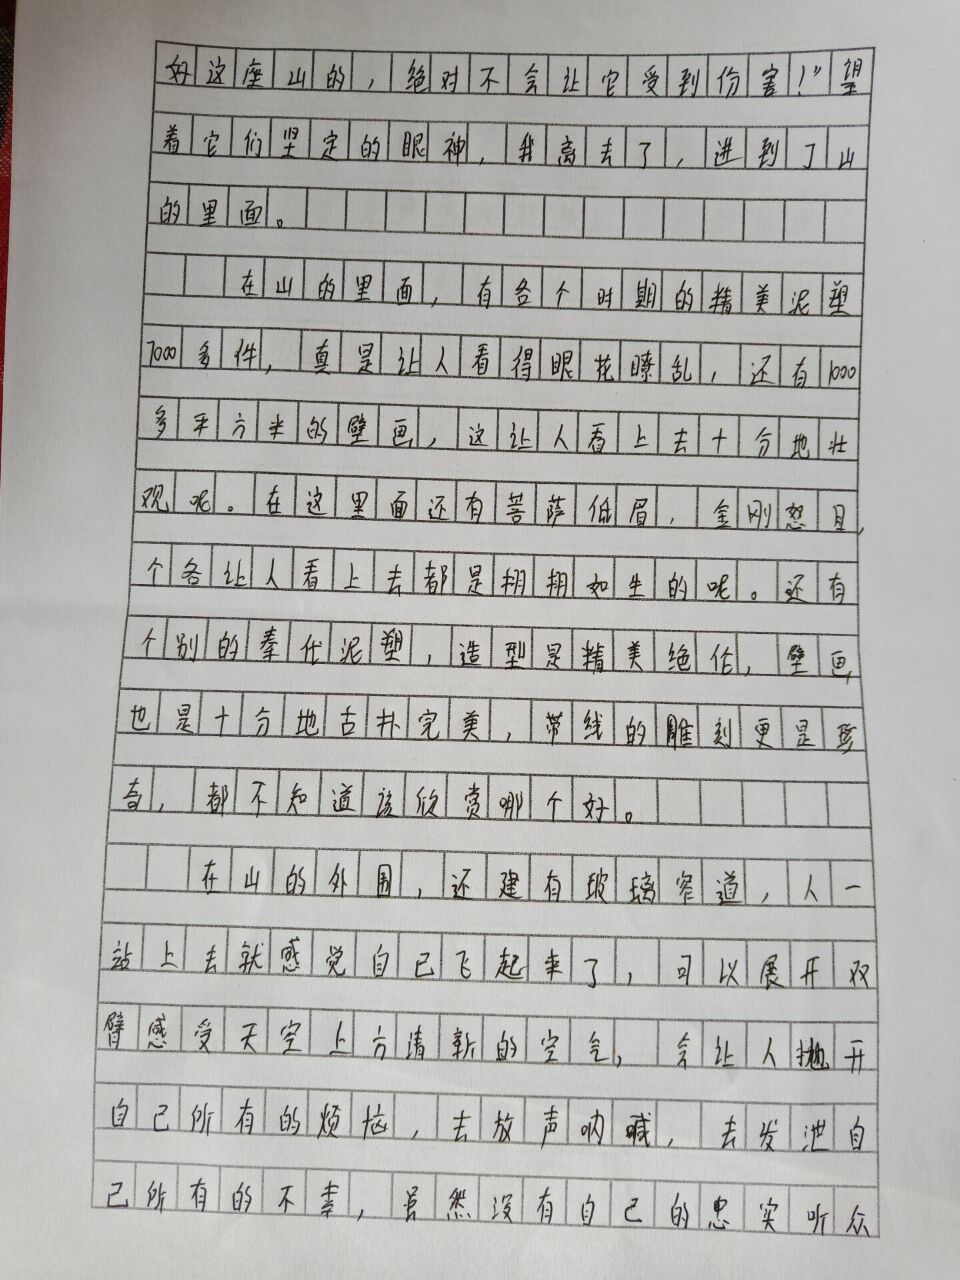 好这座山的，绝对不会让它受到伤害！”望
着它们坚定的眼神，我离去了，进到了山
的里面。
在山的里面，有各个时期的精美泥塑
7000多件，真是让人看得眼花瞭乱，还有1000
多平方米的壁画，这让人看上去十分地壮
观呢。在这里面还有菩萨低眉，金刚怒目，
个各让人看上去都是栩栩如生的呢。还有
个别的秦代泥塑，造型是精美绝伦，壁画
也是十分地古朴完美，带线的雕刻更是珍
奇，都不知道该欣赏哪个好。
在山的外围，还建有玻璃窄道，人一
站上去就感觉自己飞起来了，可以展开双
臂感受天空上方清新的空气，会让人抛开
自己所有的烦恼，去放声呐喊，去发泄自
己所有的不幸，虽然没有自己的忠实听众